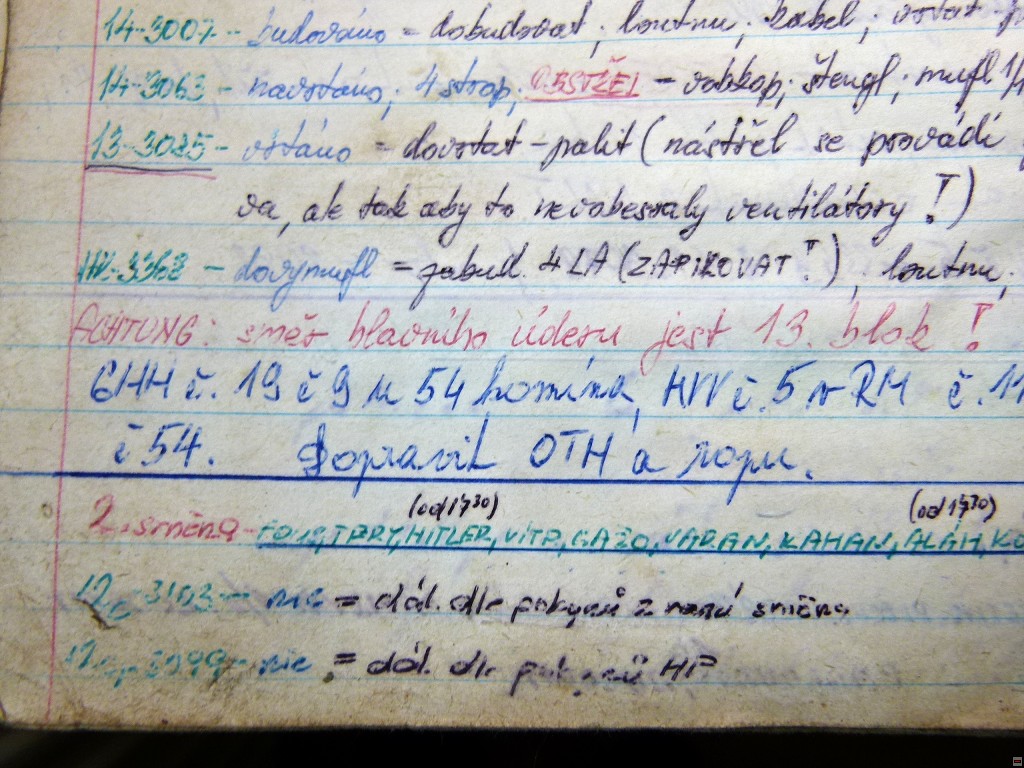 14-3007 - budováno = dobudovat, loutnu, kabel, vrtat
14-3063 - navrtáno, 4 strop, OBSTŘEL - vobkop, štengl, mufl 14
13-3085 - vrtáno = dovrtat - palit (nástřel se provádí
va, ale tak aby to nevobessraly ventilátory!)
-3368 - dovýmufl = zabud. 4 LA (ZAPIKOVAT!), loutnu,
ACHTUNG: směr hlavního úderu jest 13. blok!
č. 19 č 9 u 54 komína, HVV č. 5 v RM č. 11
č 54. Dopravit OTH a ropu.
(od 17³⁰) (od 17³⁰)
2. směna - TERY, HITLER, VÍTR, GAZO, VARAN, KAHAN, ALÁH, KO
12c-3103 - nic = dál. dle pokynů z ranní směny
-3099 - nic = dál. dle pokynů HP